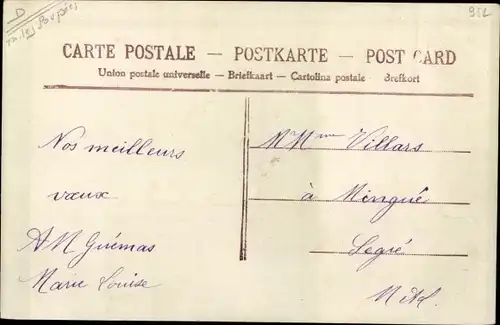 D
952
CARTE POSTALE — POSTKARTE — POST CARD
Union postale universelle — Briefkaart — Cartolina postale Brefkort
Nos meilleurs
vœux
AM Guémas
Marie Louise
MMme Villars
à Mingué
Segré